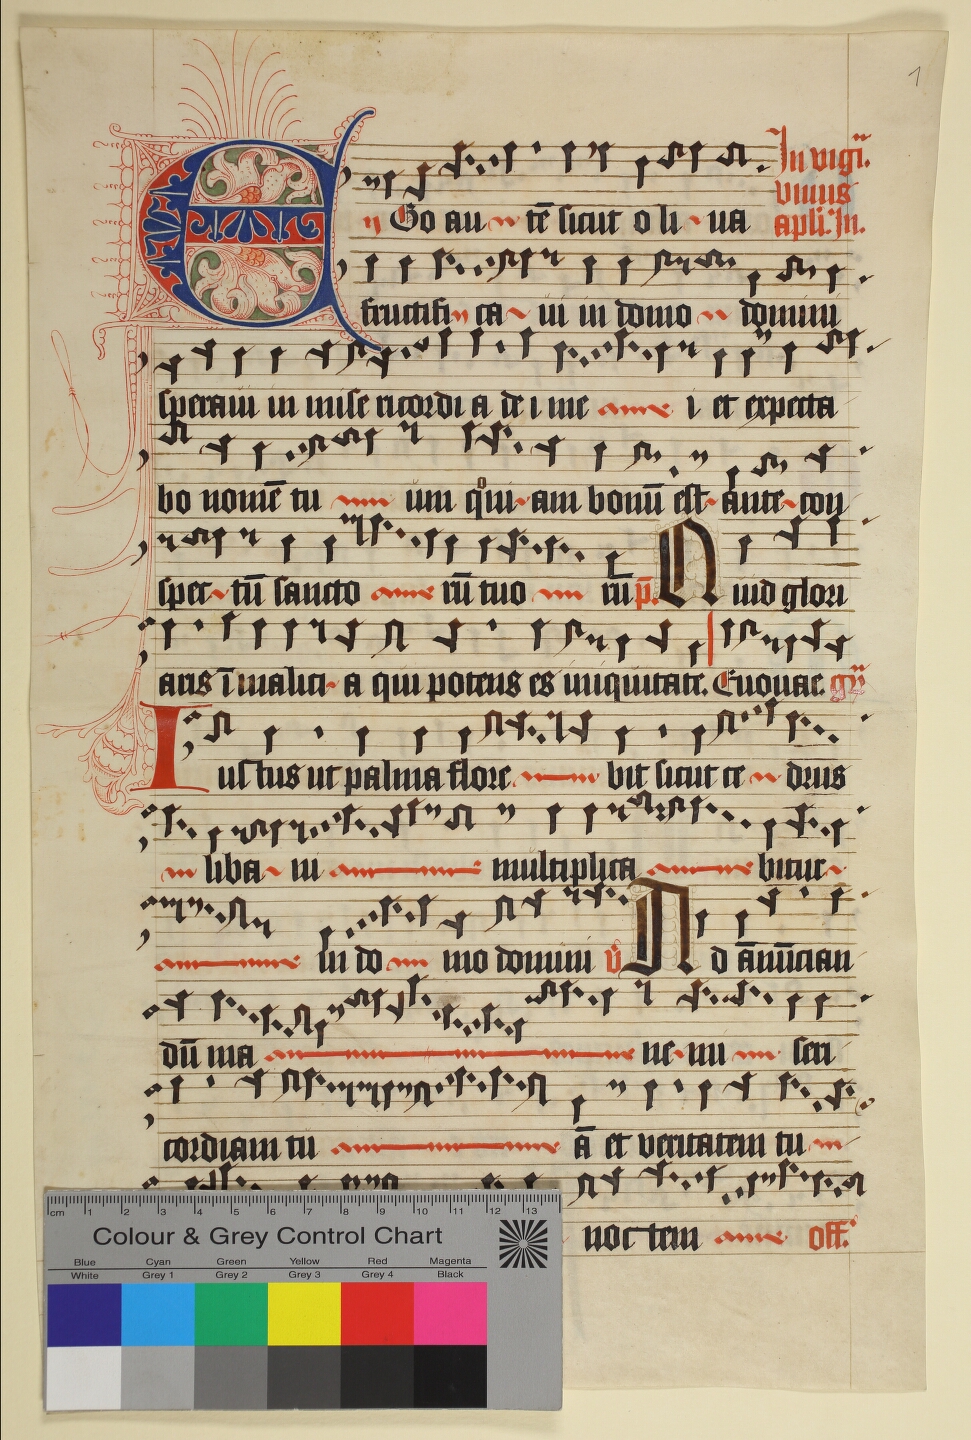 1
In vigī.
vnius
EGo au tē sicut o li ua apłi. In.
fructifi ca ui in domo domini
speraui in mise ricordi a de i me i et expecta
bo nomē tu um qm̊ am bonū est ante con
spec tū sancto rū tuo rū p̄. Quid glori
aris ī malici a qui potens es iniquitate. Euouae. gͬͣ
Iustus ut palma flore bit sicut ce drus
liba ni multiplica bitur
In do mo domini v̄ Ad ānūcian
dū ma ne mi seri
cordiam tu ā et veritatem tu
noctem off.
cm 1 2 3 4 5 6 7 8 9 10 11 12 13
Colour & Grey Control Chart
Blue Cyan Green Yellow Red Magenta
White Grey 1 Grey 2 Grey 3 Grey 4 Black